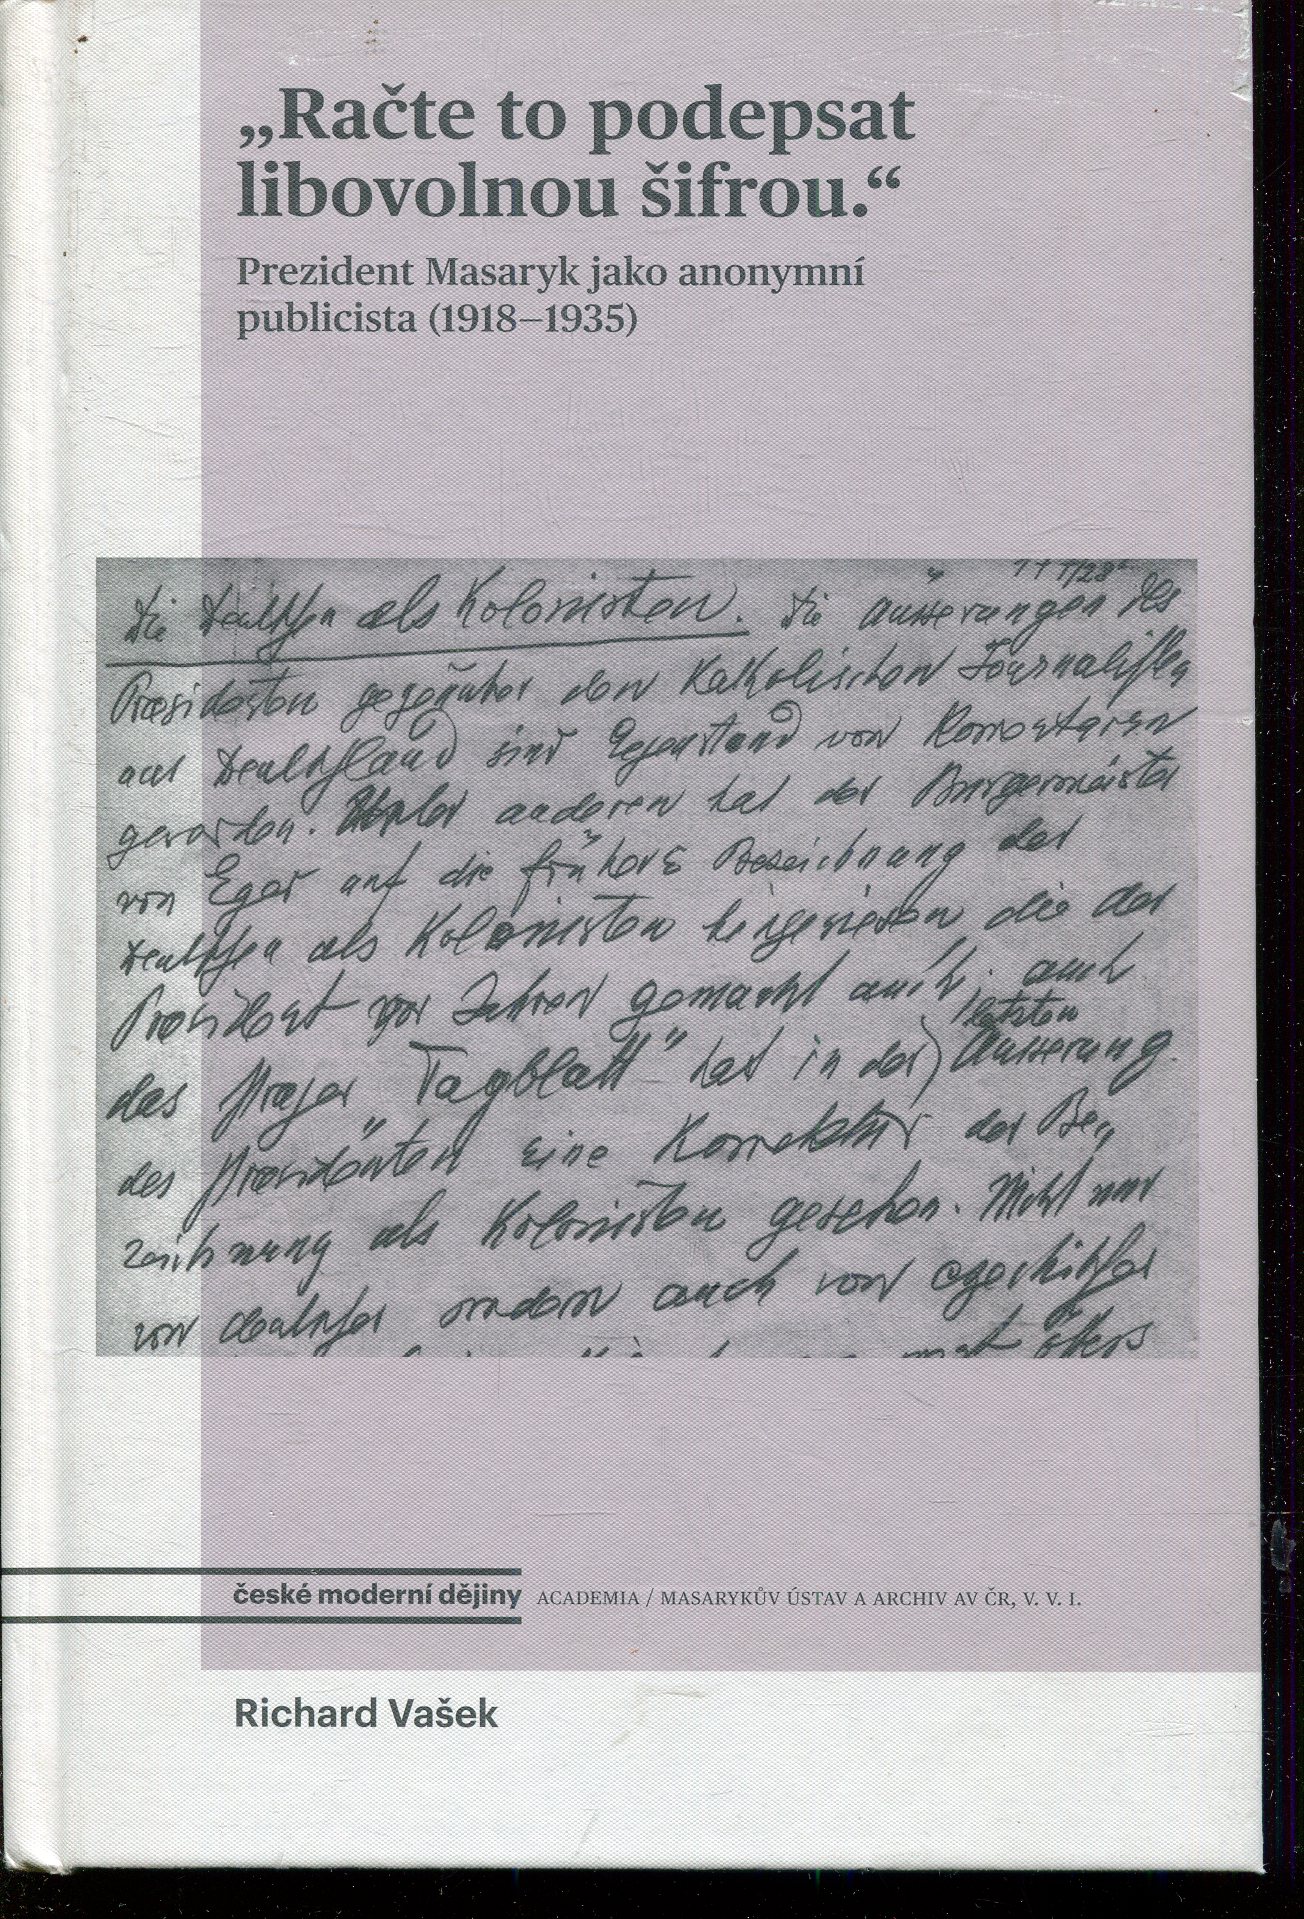 „Račte to podepsat
libovolnou šifrou.“
Prezident Masaryk jako anonymní
publicista (1918–1935)
Die Deutschen als Kolonisten. Die Äusserungen des
Præsidenten gegenüber den Katholischen Journalisten
aus Deutschland sind Gegenstand von Komentaren
geworden. Unter anderen hat der Burgermeister
von Eger auf die frühere Bezeichnung der
Deutschen als Kolonisten hingewiesen die der
Præsident vor Jahren gemacht auch
letzten
das Prager „Tagblatt“ hat in der Äusserung
des Præsidenten eine Korrektur der Be„
zeichnung als Kolonisten gesehen. Nicht nur
von deutscher sondern auch von
öfters
české moderní dějiny ACADEMIA / MASARYKŮV ÚSTAV A ARCHIV AV ČR, V. V. I.
Richard Vašek